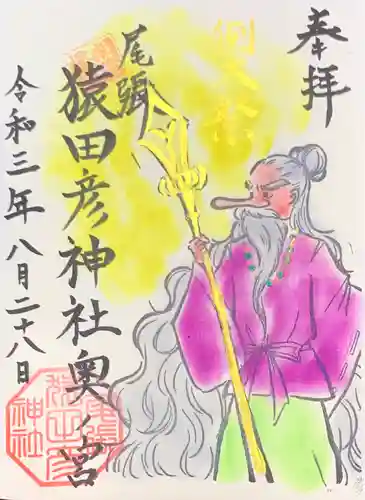 奉拝
尾張
猿田彦神社奥ノ宮
令和三年八月二十八日
神社